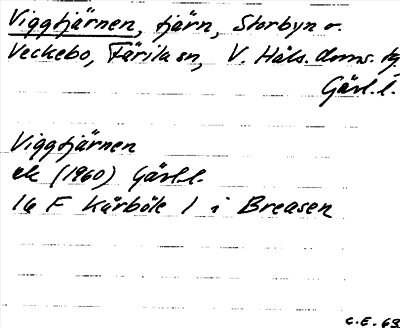 Viggtjärnen, tjärn, Storbyn o.
Veckebo, Färila sn, V. Häls. doms. tg
Gävl. l.
Viggtjärnen
ek (1960) Gävl. l.
16 F Kårböle 1 i Breasen
C.E. 63